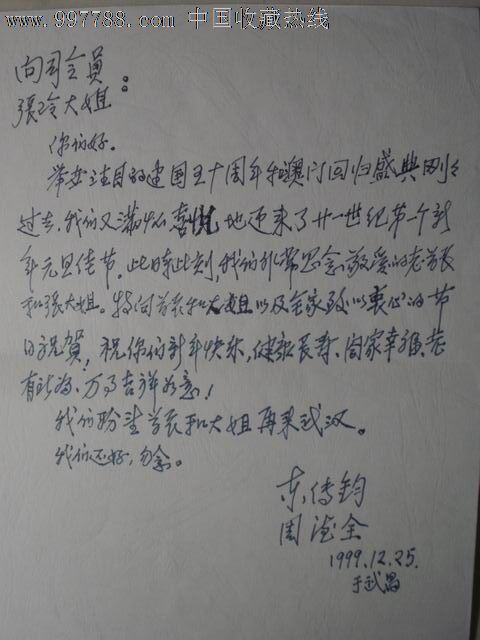 www.997788.com 中国收藏热线
向司令員
張玲大姐：
你们好。
举世注目的建国五十周年和澳门回归盛典刚刚
过去，我们又满怀喜悦地迎来了廿一世纪第一个新
年元旦佳节。此时此刻，我们非常思念敬爱的老首长
和張大姐。特向首长和大姐以及全家致以衷心的节
日祝賀！祝你们新年快乐，健康长寿、阖家幸福、恭
有財喜、万事吉祥如意！
我们盼望首长和大姐再来武汉。
我们还好，勿念。
东傳鈞
周鸿全
1999.12.25.
于武昌